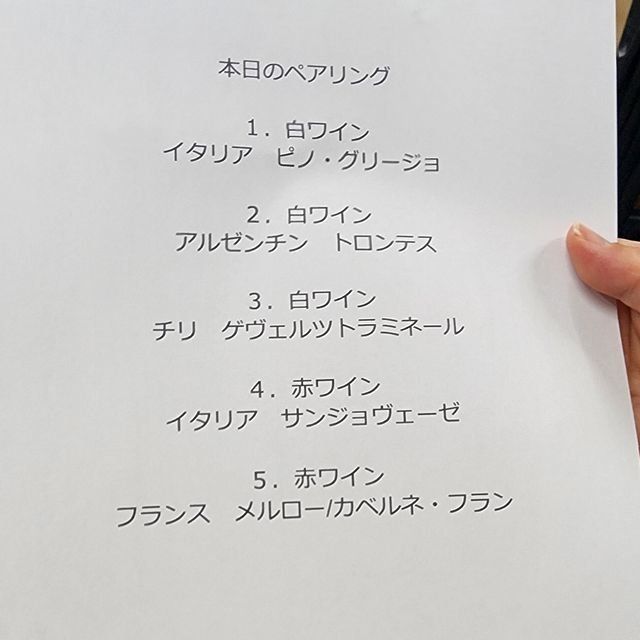 本日のペアリング
１．白ワイン
イタリア　ピノ・グリージョ
２．白ワイン
アルゼンチン　トロンテス
３．白ワイン
チリ　ゲヴェルツトラミネール
４．赤ワイン
イタリア　サンジョヴェーゼ
５．赤ワイン
フランス　メルロー/カベルネ・フラン